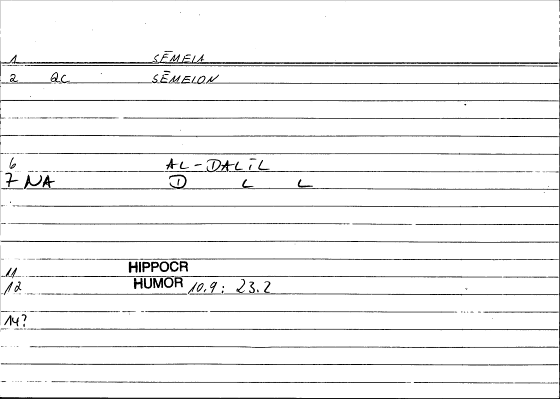 1 SĒMEIA
2 QC SĒMEION
6 AL-DALĪL
7 NA D L L
11 HIPPOCR
12 HUMOR 10.9: 23.2
14?